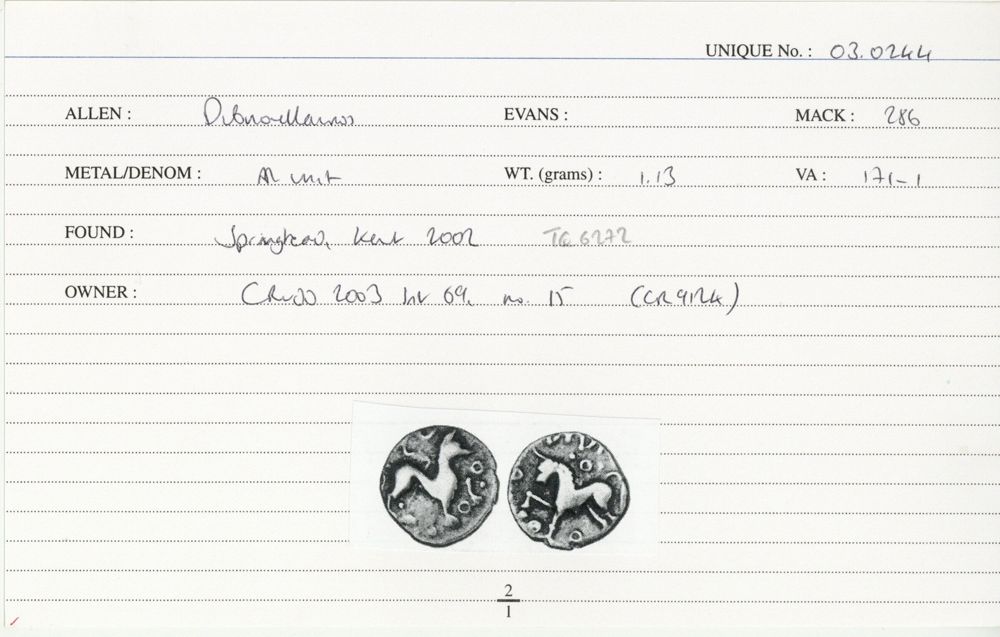 UNIQUE No. : 03.0244
ALLEN : Dubnovellaunos EVANS : MACK : 286
METAL/DENOM : AR unit WT. (grams) : 1.13 VA : 171-1
FOUND : Springhead, Kent 2002 TQ 6272
OWNER : 2003 list 69, no. 15 (CR 9124)
DIVI
2
1